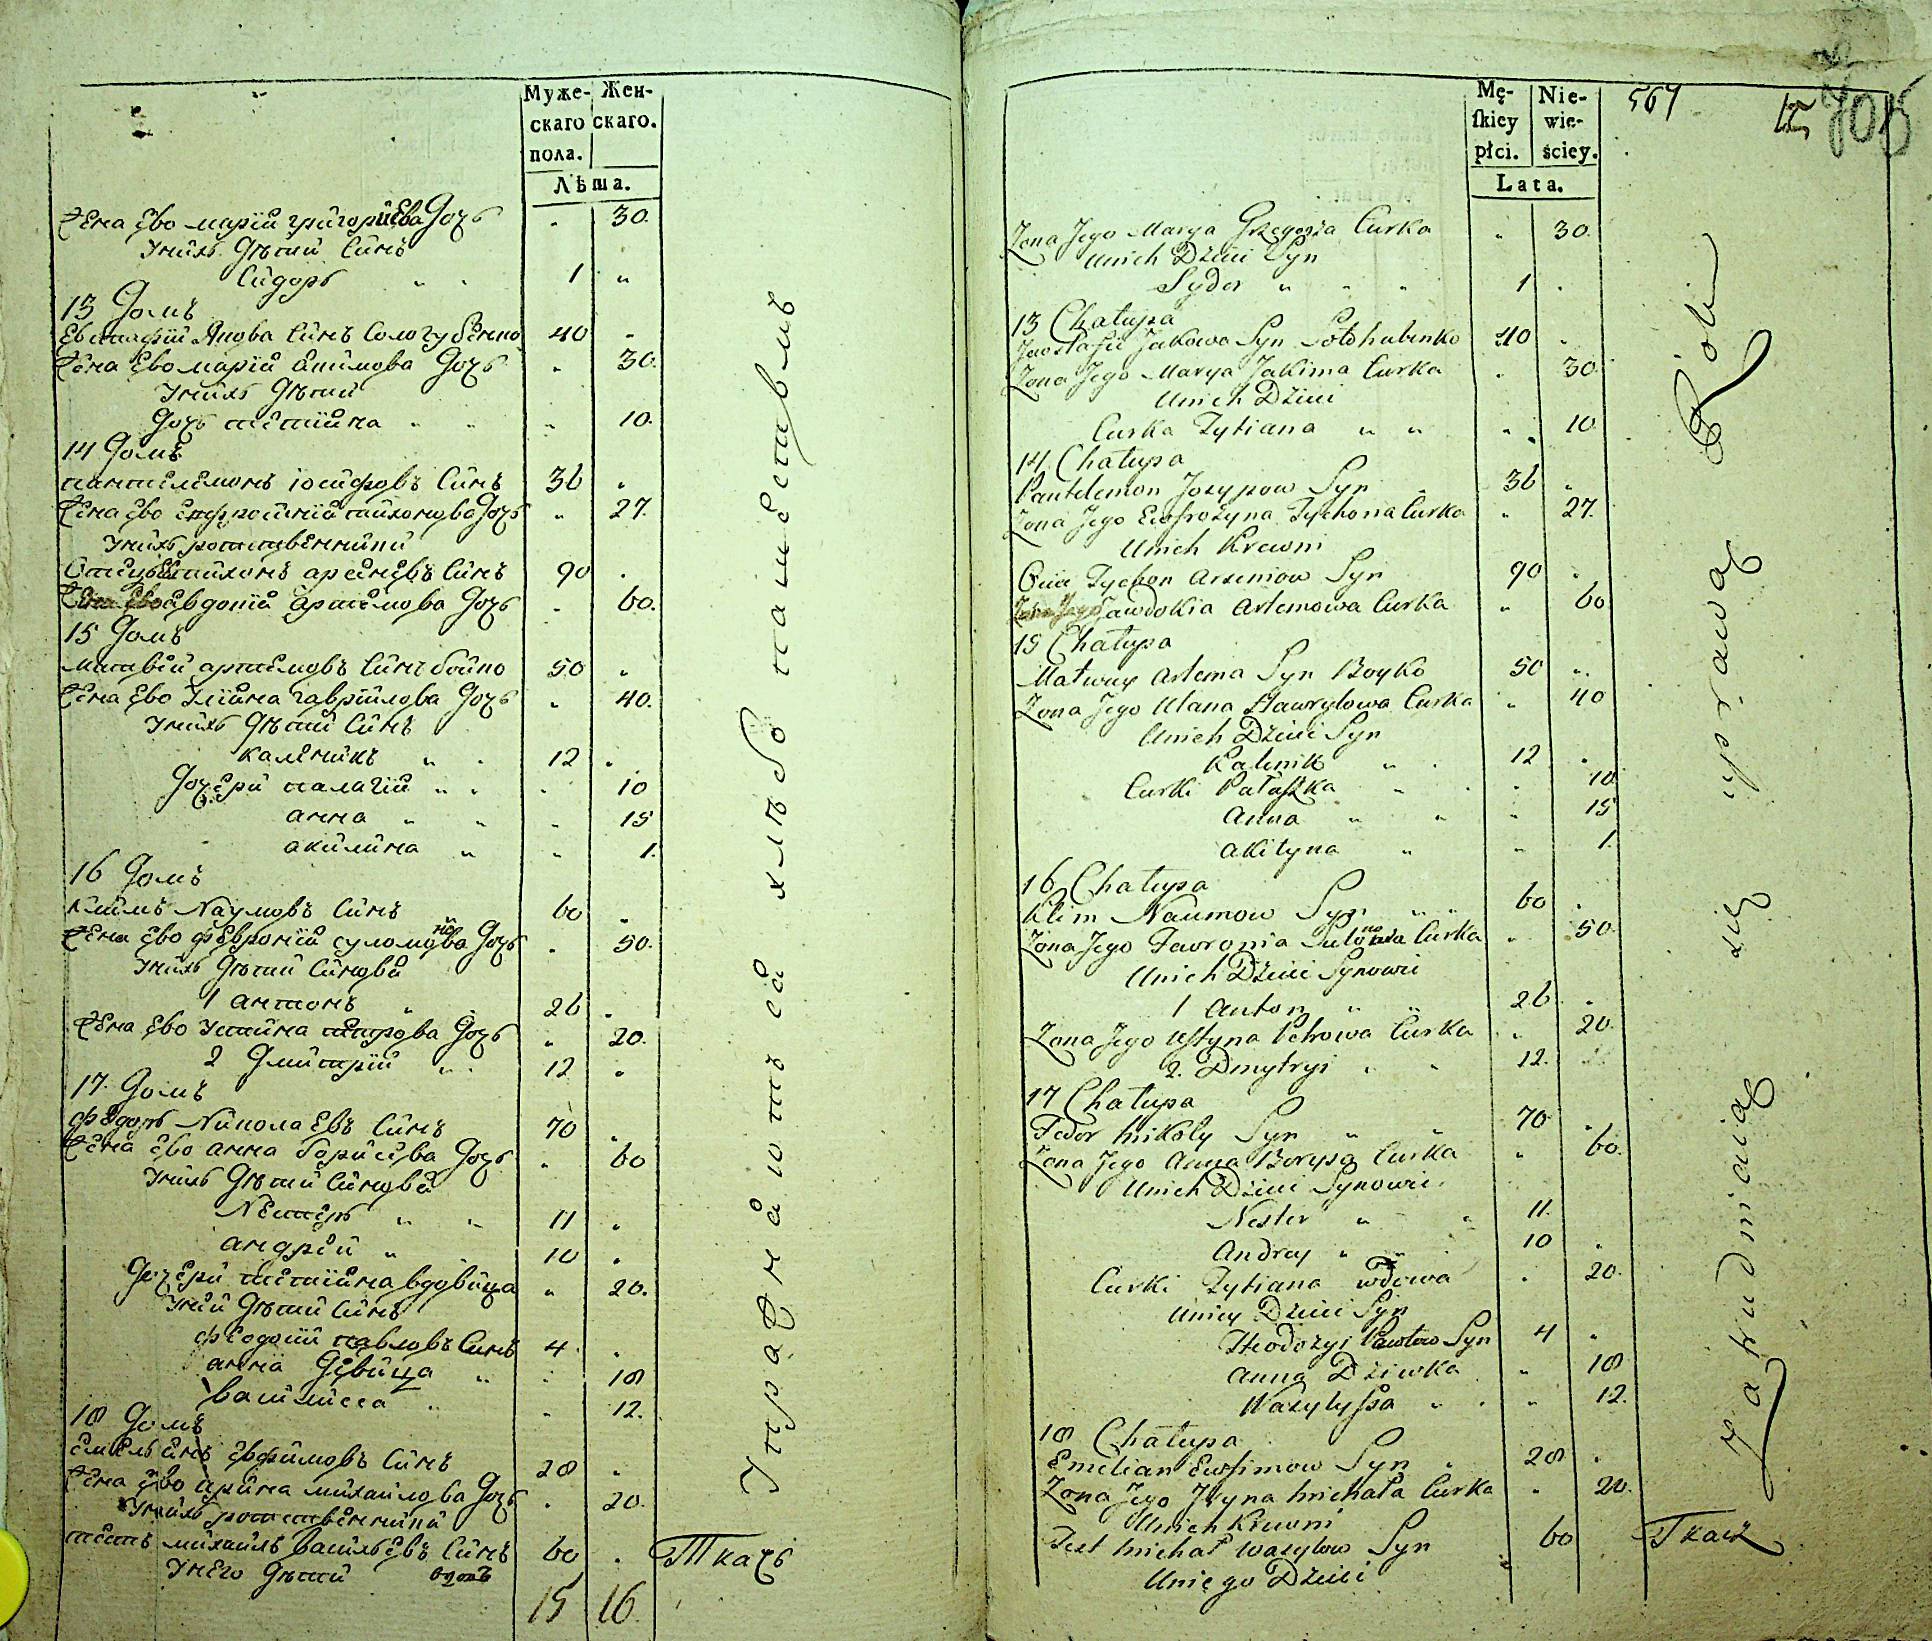 Муже- Жен-
скаго скаго.
пола.
Лѣта.
Жена Ево марїя григориева Дочь " 30.
Уних Дѣти Синъ
Сидоръ " " 1 "
13 Домъ
Евстафїй Якова Синъ Сологубенко 40 "
Жена Ево марїя Якимова Дочь " 30.
Уних Дѣти
Дочь татияна " " " 10.
14 Домъ
пантелемонъ іосифовъ Синъ 36 "
Жена Ево Ефросинїя тихонова Дочь " 27.
Уних родственники
Отецъ тихонъ арсеневъ Синъ 90 "
Жена Ево Явдокїя артемова Дочь " 60.
15 Домъ
матвей артемовъ Синъ бойко 50 "
Жена Ево Улияна гаврилова Дочь " 40.
Уних Дѣти Синъ
каленикъ " " 12 "
Дочери палагїя " " " 10
анна " " " 15
акилина " " 1.
16 Домъ
климъ Наумовъ Синъ 60 "
Жена Ево февронїя суломонова Дочь " 50.
Уних Дѣти Синовя
1 антонъ " " 26 "
Жена Ево Устина петрова Дочь " 20.
2 Дмитрїй " " 12 "
17. Домъ
федоръ Николаевъ Синъ 70 "
Жена Ево анна борисева Дочь " 60
Уних Дѣти Синовя
Нестеръ " " 11 "
андрей " 10 "
Дочери татияна вдовица " 20.
Уней Дѣти Синъ
феодосий павловъ Синъ 4 "
анна Девица " " 18
василисса " " 12.
18 Домъ
емельянъ евфимовъ Синъ 28 "
Жена Ево арина михайлова Дочь " 20.
Уних родственники
тесть михайлъ васильевъ Синъ 60 " Ткачь
Унего Дѣти
15 16
Упражняютъ ся хлѣбо пашествмъ
Mę- Nie-
ſkiey wie-
płci. ściey.
Lata.
567
705
Zona Jego Marya Grzegorża Curka " 30.
Unich Dzieci Syn
Sydor " " " 1 "
13 Chatupa
Jewstafii Jakowa Syn Sotohubenko 40 "
Zona Jego Marya Jakima Curka " 30
Unich Dzieci
Curka Tytiana " " " 10
14. Chatupa
Pantelemon Jozypow Syn " 36 "
Zona Jego Ewfrozyna Tychona Curka " 27.
Unich Krewni
Ociec Tychon Arseniow Syn 90 "
Zona Jego Jawdokia Artemowa Curka " 60
15 Chatupa
Matwey Artema Syn Boyko 50 "
Zona Jego Ulana Hawryłowa Curka " 40
Unich Dzieci Syn
Kalinik " " 12 "
Curki Pałaszka " " " 10
Anna " " " 15
Akilyna " " 1.
16 Chatupa
Klim Naumow Syn " " 60 "
Zona Jego Fawronia Sulomonowa Curka " 50
Unich Dzieci Synowie
1 Anton " " 26 "
Zona Jego Ustyna Petrowa Curka " 20.
2. Dmytryi " " 12.
17 Chatupa
Fedor Mikoły Syn " " 70 "
Zona Jego Anna Borysa Curka " 60.
Unich Dzieci Synowie
Nester " " 11.
Andrey " " 10 "
Curki Tytiana wdowa " 20.
Uniey Dzieci Syn
Theodozyi Pawłow Syn 4 "
Anna Dziwka " 18
Wasylyssa " " " 12.
18 Chatupa
Emelian Ewfimow Syn " 28 "
Zona Jego Iryna Michała Curka " 20.
Unich Krewni
Test Michał Wasylow Syn 60 Tkacz
Uniego Dzieci
Zatrudniaią się uprawą Roli